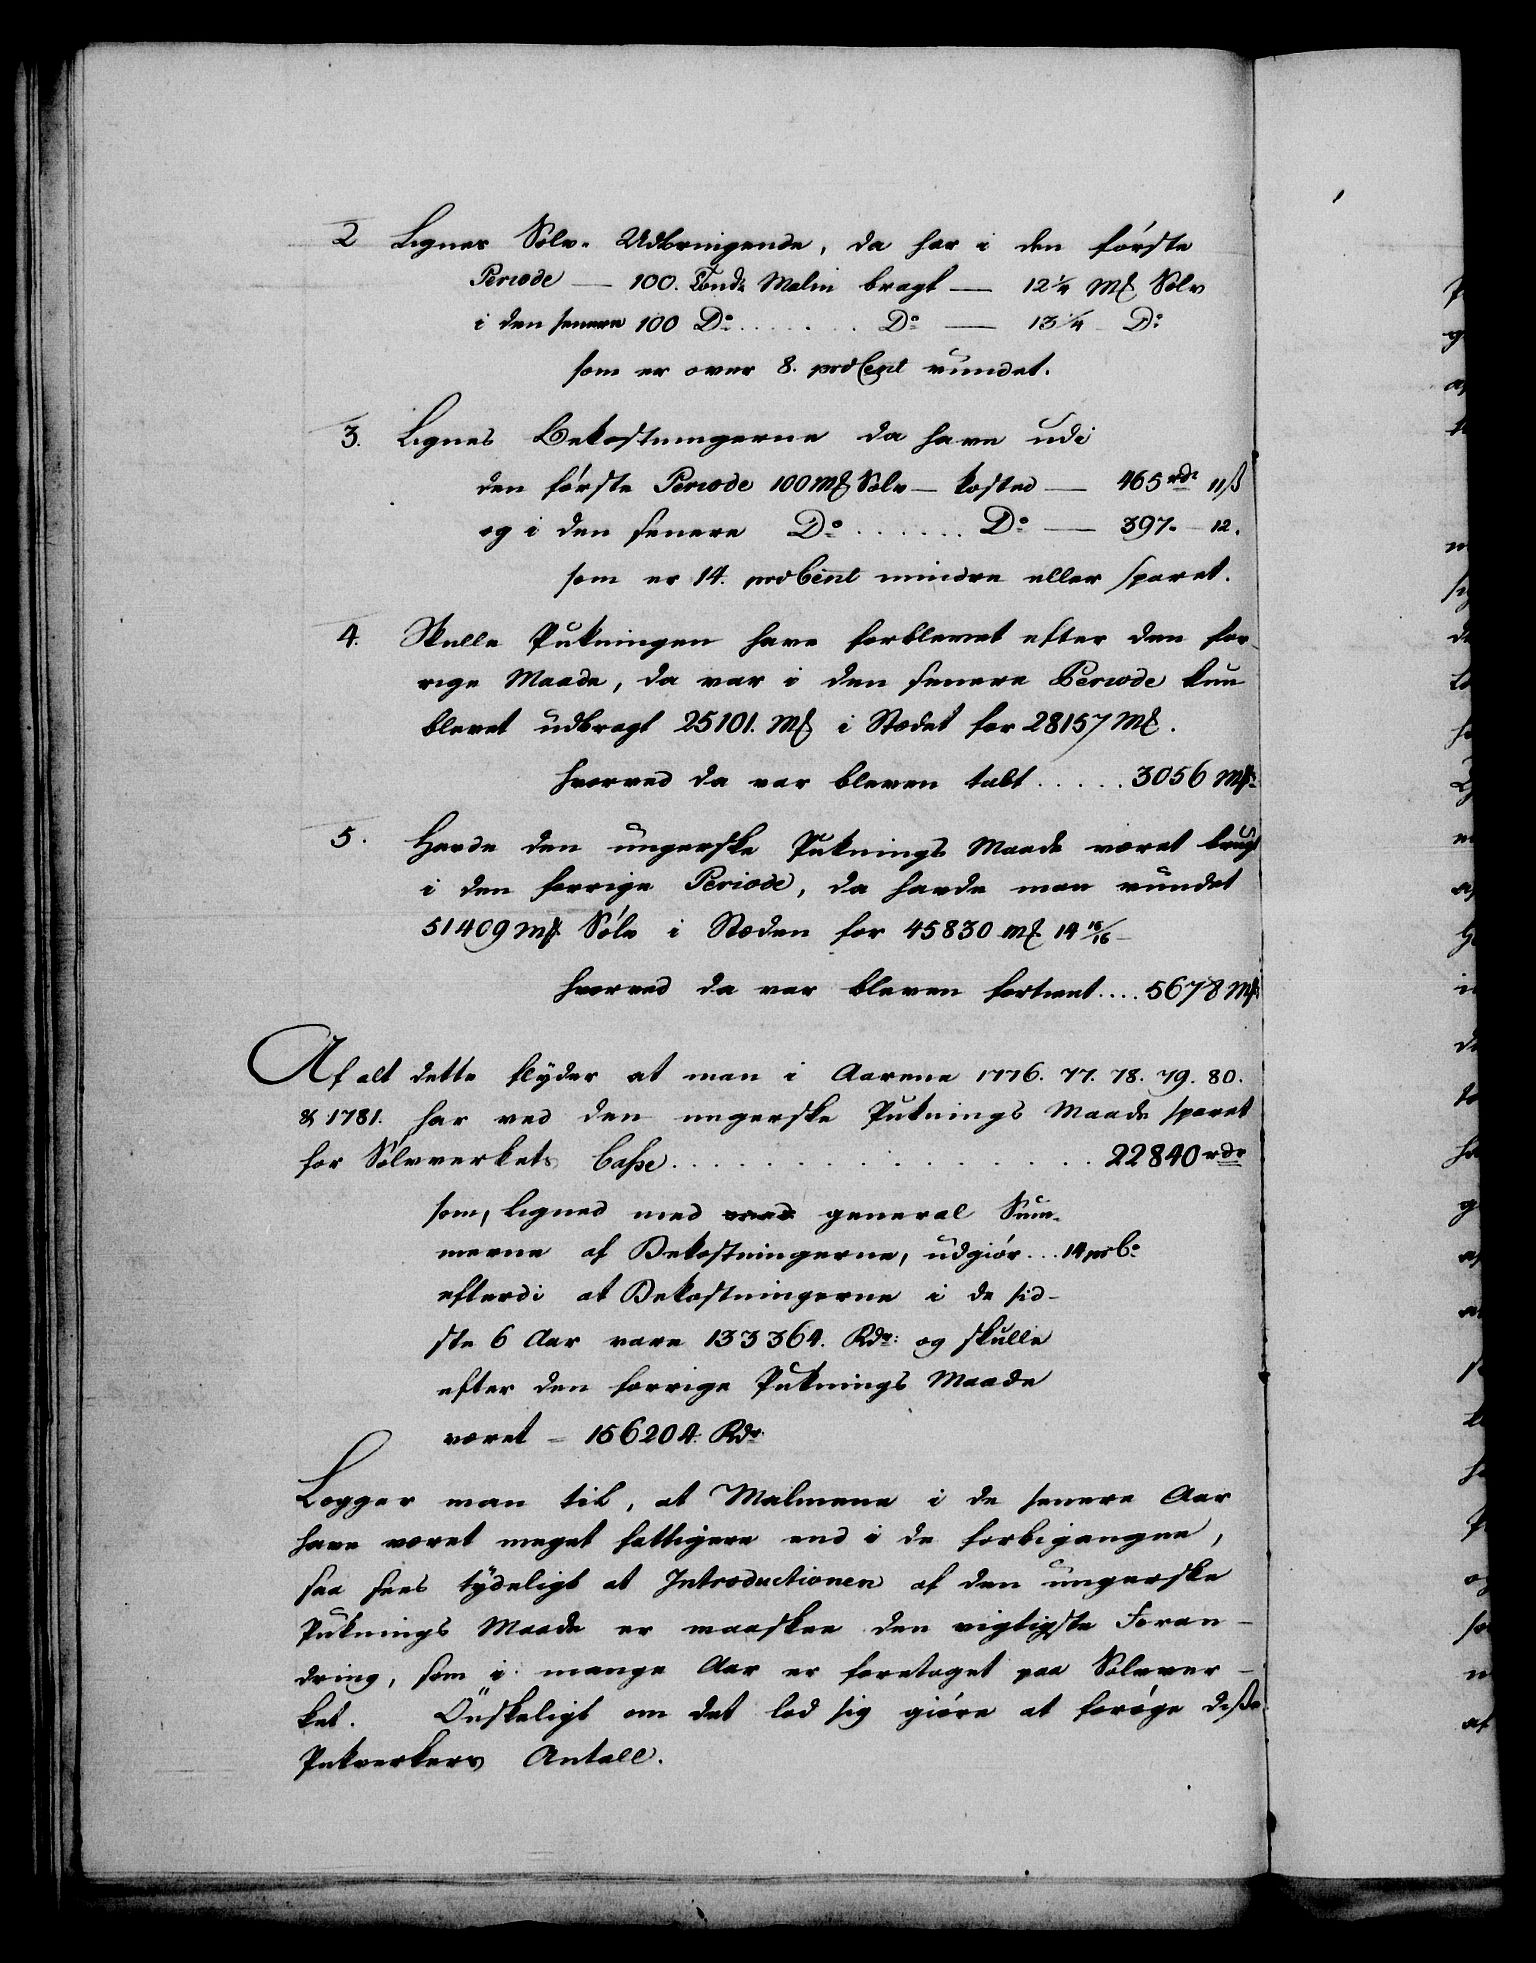 2 Lignes Sølv-Udbringende, da har i den første
Periode — 100. Tönd: Malm bragt — 12 1/4 M# Sølv
i den senere 100 Do: . . . . . . . Do: — 13 1/4 Do:
som er over 8. proCent vundet.
3. Lignes Bekostningerne da have udi
den første Periode 100 M# Sølv — kosted — 465 rdr 11ß
og i den senere Do: . . . . . . Do: — 397. — 12.
som er 14. proCent mindre eller sparet.
4. Skulle Pukningen have forblevet efter den for-
rige Maade, da var i den senere Periode kun
blevet udbragt 25101. M# i Stædet for 28157 M#.
hvorved da var bleven tabt . . . . . 3056 M#:
5. Havde den ungerske Puknings Maade været brugt
i den forrige Periode, da havde man vundet
51409 M# Sølv i Stæden for 45830 M# 14 15/16 —
hvorved da var bleven fortient . . . . 5678 M#
Af alt dette flyder at man i Aarene 1776. 77. 78. 79. 80.
& 1781. har ved den ungerske Puknings Maade sparet
for Sølvverkets Casse . . . . . . . . . . . . . . . 22840 rdr
som, lignes med general Sum-
merne af Bekostningerne, udgiør . . . 14 prC:
efterdi at Bekostningerne i de sid-
ste 6 Aar vare 133364. Rdr: og skulle
efter den forrige Puknings Maade
været — 156204. Rdr.
Legger man til, at Malmene i de senere Aar
have været meget fattigere end i de forbigangne,
saa sees tydeligt at Introductionen af den ungerske
Puknings Maade er maaskee den vigtigste Foran-
dring, som i mange Aar er foretaget paa Sølvver-
ket. Önskeligt om det lod sig giøre at forøge disse
Pukverkers Antall.